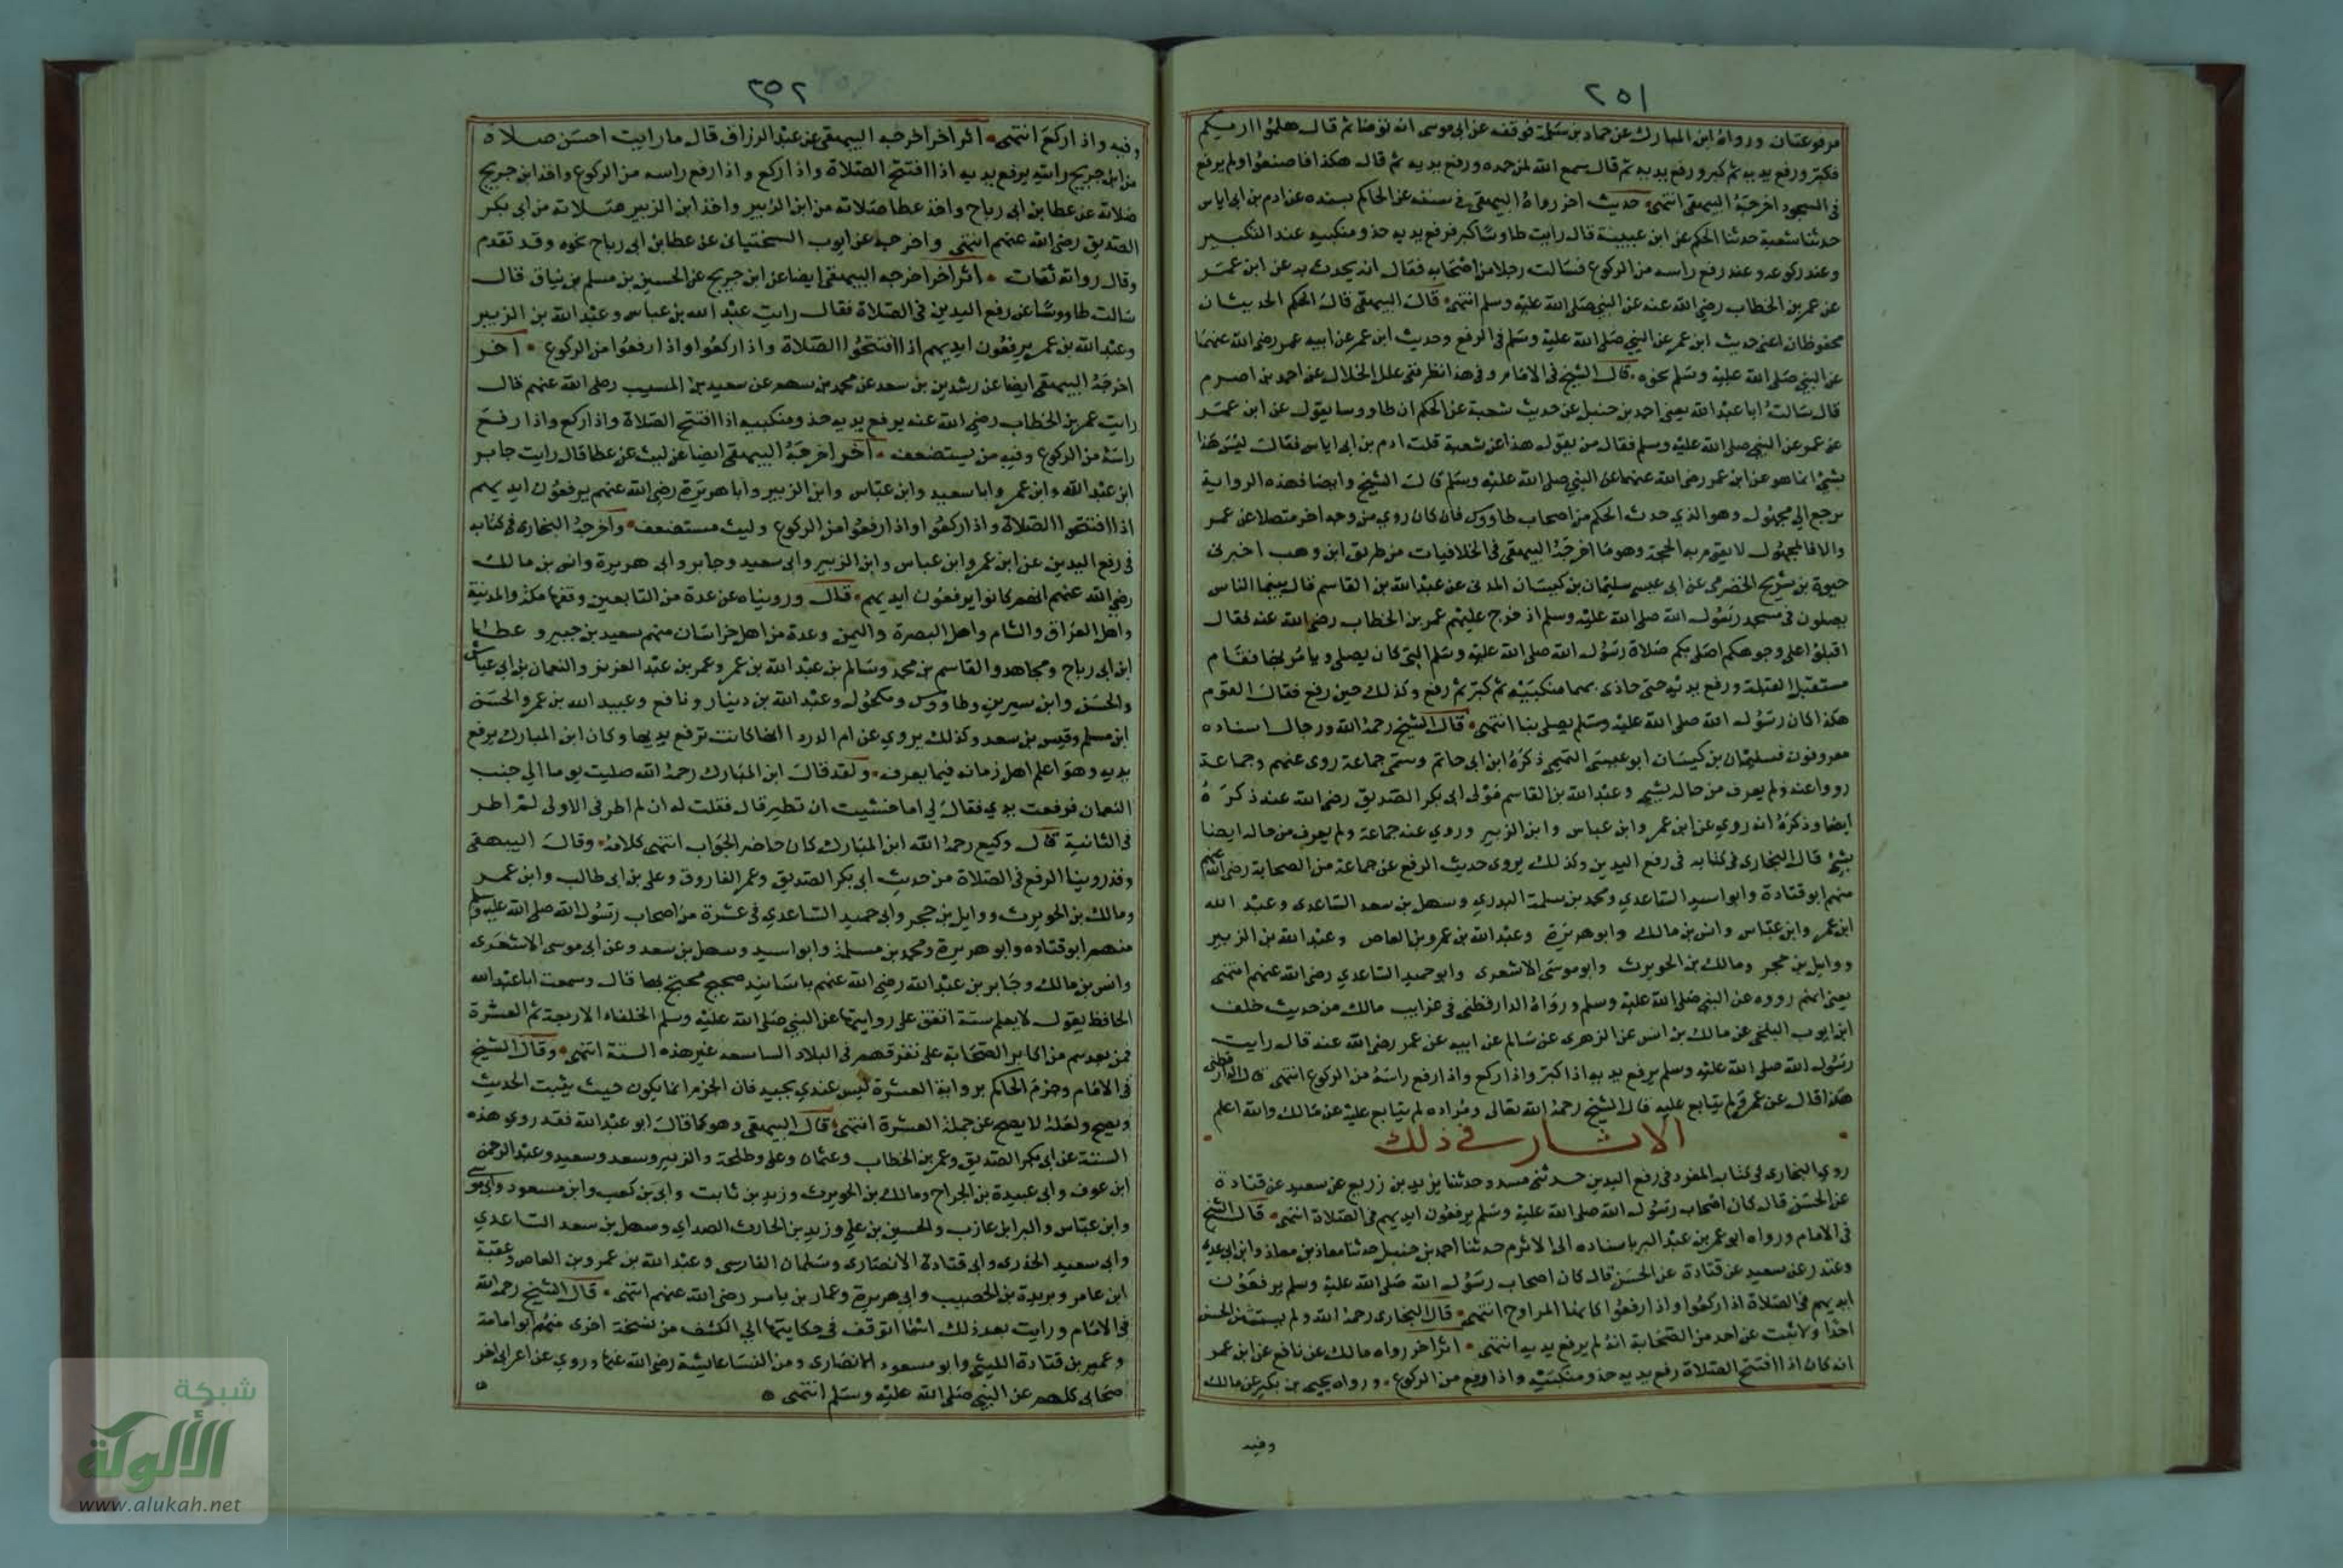 ٢٥١
مرفوعتان ورواه ابن المبارك عن حماد بن سلمة فوقفه عن ابى موسى انه توضا ثم قال هلموا اريكم
فكبر ورفع يديه ثم كبر ورفع يديه ثم قال سمع الله لمن حمده ورفع يديه ثم قال هكذا فاصنعوا ولم يرفع
فى السجود اخرجه البيهقى انتهى حديث اخر رواه البيهقى فى سننه عن الحاكم بسنده عن ادم بن ابى اياس
حدثنا شعبة حدثنا الحكم عن ابن عيينة قال رايت طاوسا كبر فرفع يديه حذو منكبيه عند التكبير
وعند ركوعه وعند رفع راسه من الركوع فسالت رجلا من اصحابه فقال انه يحدث به عن ابن عمر
عن عمر بن الخطاب رضي الله عنه عن النبي صلى الله عليه وسلم انتهى قال البيهقى قال الحكم الحديثان
محفوظان اعنى حديث ابن عمر عن النبي صلى الله عليه وسلم فى الرفع وحديث ابن عمر عن ابيه عمر رضى الله عنهما
عن النبي صلى الله عليه وسلم نحوه قال الشيخ فى الامام وفى هذا نظر ففى علل الخلال عن احمد بن اصرم
قال سالت ابا عبد الله يعنى احمد بن حنبل عن حديث شعبة عن الحكم ان طاووسا يقول عن ابن عمر
عن عمر عن النبي صلى الله عليه وسلم فقال من يقول هذا عن شعبة قلت ادم بن ابى اياس فقال ليس هذا
بشئ انما هو عن ابن عمر رضى الله عنهما عن النبي صلى الله عليه وسلم قال الشيخ وايضا فهذه الرواية
يرجع الى مجهول وهو الذي حدث الحكم من اصحاب طاووس فان كان روي من وجه اخر متصلا عن عمر
والا فالمجهول لا يقوم به الحجة وهو ما اخرجه البيهقى فى الخلافيات من طريق ابن وهب اخبرنى
حيوة بن شريح الحضرمى عن ابى عيسى سليمان بن كيسان المدنى عن عبد الله بن القاسم قال بينما الناس
يصلون فى مسجد رسول الله صلى الله عليه وسلم اذ خرج عليهم عمر بن الخطاب رضى الله عنه فقال
اقبلوا على وجوهكم اصلى بكم صلاة رسول الله صلى الله عليه وسلم التى كان يصلى ويامر بها فقام
مستقبل القبلة ورفع يديه حتى حاذى بهما منكبيه ثم كبر ثم رفع وكذلك حين رفع فقال القوم
هكذا كان رسول الله صلى الله عليه وسلم يصلى بنا انتهى قال الشيخ رحمه الله ورجال اسناده
معروفون فسليمان بن كيسان ابو عيسى التميمى ذكره ابن ابى حاتم وسمى جماعة روى عنهم وجماعة
رووا عنه ولم يعرف من حاله بشئ وعبد الله بن القاسم مولى ابى بكر الصديق رضى الله عنه ذكره
ايضا وذكر انه روي عن ابن عمر وابن عباس وابن الزبير وروي عنه جماعة ولم يعرف من حاله ايضا
بشئ قال البخارى فى كتابه فى رفع اليدين وكذلك يروى حديث الرفع عن جماعة من الصحابة رضى الله عنهم
منهم ابو قتادة وابو اسيد الساعدي ومحمد بن سلمة البدري وسهل بن سعد الساعدى وعبد الله
ابن عمر وابن عباس وانس بن مالك وابو هريرة وعبد الله بن عمرو بن العاص وعبد الله بن الزبير
ووايل بن حجر ومالك بن الحويرث وابو موسى الاشعرى وابو حميد الساعدي رضى الله عنهم انتهى
يعنى انهم رووه عن النبي صلى الله عليه وسلم ورواه الدارقطنى فى غرايب مالك من حديث خلف
ابن ايوب البلخى عن مالك بن انس عن الزهرى عن سالم عن ابيه عن عمر رضى الله عنه قال رايت
رسول الله صلى الله عليه وسلم يرفع يديه اذا كبر واذا ركع واذا رفع راسه من الركوع انتهى قال الدارقطنى
هكذا قال عن عمر ولم يتابع عليه قال الشيخ رحمه الله تعالى ومراده لم يتابع عليه عن مالك والله اعلم
الاثار فى ذلك
روي البخارى فى كتابه المفرد فى رفع اليدين حدثنى مسدد وحدثنا يزيد بن زريع عن سعيد عن قتادة
عن الحسن قال كان اصحاب رسول الله صلى الله عليه وسلم يرفعون ايديهم فى الصلاة انتهى قال الشيخ
فى الامام ورواه ابو عمر بن عبد البر باسناده الى الاثرم حدثنا احمد بن حنبل حدثنا معاذ بن معاذ وابن ابى عدي
وغندر عن سعيد عن قتادة عن الحسن قال كان اصحاب رسول الله صلى الله عليه وسلم يرفعون
ايديهم فى الصلاة اذا ركعوا واذا رفعوا كانها المراوح انتهى قال البخارى رحمه الله ولم يستثن الحسن
احدا ولا ثبت عن احد من الصحابة انه لم يرفع يديه انتهى اثر اخر رواه مالك عن نافع عن ابن عمر
انه كان اذا افتتح الصلاة رفع يديه حذو منكبيه واذا رفع من الركوع ورواه يحيى بن بكير عن مالك
وفيه
٢٥٢
وفيه واذا ركع انتهى اثر اخر اخرجه البيهقى عن عبد الرزاق قال ما رايت احسن صلاة
من ابن جريج رايته يرفع يديه اذا افتتح الصلاة واذا ركع واذا رفع راسه من الركوع واخذ ابن جريج
صلاته عن عطا بن ابى رباح واخذ عطا صلاته من ابن الزبير واخذ ابن الزبير صلاته من ابى بكر
الصديق رضى الله عنهم انتهى واخرجه عن ايوب السختيانى عن عطا بن ابى رباح نحوه وقد تقدم
وقال رواته ثقات اثر اخر اخرجه البيهقى ايضا عن ابن جريج عن الحسين بن مسلم بن نياق قال
سالت طاووسا عن رفع اليدين فى الصلاة فقال رايت عبد الله بن عباس وعبد الله بن الزبير
وعبد الله بن عمر يرفعون ايديهم اذا افتتحوا الصلاة واذا ركعوا واذا رفعوا من الركوع اخر
اخرجه البيهقى ايضا عن رشدين بن سعد عن محمد بن سهم عن سعيد بن المسيب رضى الله عنهم قال
رايت عمر بن الخطاب رضي الله عنه يرفع يديه حذو منكبيه اذا افتتح الصلاة واذا ركع واذا رفع
راسه من الركوع وفيه من يستضعف اخر اخرجه البيهقى ايضا عن ليث عن عطا قال رايت جابر
ابن عبد الله وابن عمر وابا سعيد وابن عباس وابن الزبير وابا هريرة رضى الله عنهم يرفعون ايديهم
اذا افتتحوا الصلاة واذا ركعوا واذا رفعوا من الركوع وليث مستضعف واخرجه البخارى فى كتابه
فى رفع اليدين عن ابن عمر وابن عباس وابن الزبير وابى سعيد وجابر وابى هريرة وانس بن مالك
رضي الله عنهم انهم كانوا يرفعون ايديهم قال ورويناه عن عدة من التابعين وفقها مكة والمدينة
واهل العراق والشام واهل البصرة واليمن وعدة من اهل خراسان منهم سعيد بن جبير وعطا
ابن ابى رباح ومجاهد والقاسم بن محمد وسالم بن عبد الله بن عمر وعمر بن عبد العزيز والنعمان بن ابى عياش
والحسن وابن سيرين وطاووس ومكحول وعبد الله بن دينار ونافع وعبيد الله بن عمر والحسن
ابن مسلم وقيس بن سعد وكذلك يروي عن ام الدردا انها كانت ترفع يديها وكان ابن المبارك يرفع
يديه وهو اعلم اهل زمانه فيما يعرف ولقد قال ابن المبارك رحمه الله صليت يوما الي جنب
النعمان فرفعت يدي فقال لي اما خشيت ان تطير قال فقلت له ان لم اطر فى الاولى لم اطر
فى الثانية قال وكيع رحمه الله ابن المبارك كان حاضر الجواب انتهى كلامه وقال البيهقى
وقد روينا الرفع فى الصلاة من حديث ابى بكر الصديق وعمر الفاروق وعلى بن ابى طالب وابن عمر
ومالك بن الحويرث ووايل بن حجر وابى حميد الساعدي فى عشرة من اصحاب رسول الله صلى الله عليه وسلم
منهم ابو قتاده وابو هريرة ومحمد بن مسلمة وابو اسيد وسهل بن سعد وعن ابى موسى الاشعرى
وانس بن مالك وجابر بن عبد الله رضي الله عنهم باسانيد صحيح محتج بها قال وسمعت ابا عبد الله
الحافظ يقول لا يعلم سنة اتفق على روايتها عن النبي صلى الله عليه وسلم الخلفاء الاربعة ثم العشرة
فمن بعدهم من اكابر الصحابة على تفرقهم فى البلاد الساسعة غير هذه السنة انتهى وقال الشيخ
فى الامام وجزم الحاكم برواية العشرة ليس عندي بجيد فان الجزم انما يكون حيث يثبت الحديث
ويصح ولعله لا يصح عن جملة العشرة انتهى قال البيهقى وهو كما قال ابو عبد الله فقد روي هذه
السنة عن ابى بكر الصديق وعمر بن الخطاب وعثمان وعلى وطلحة والزبير وسعد وسعيد وعبد الرحمن
ابن عوف وابى عبيدة بن الجراح ومالك بن الحويرث وزيد بن ثابت وابى بن كعب وابن مسعود وابى موسى
وابن عباس والبرا بن عازب والحسين بن علي وزيد بن الحارث الصداي وسهل بن سعد الساعدي
وابى سعيد الخدري وابى قتادة الانصارى وسلمان الفارسى وعبد الله بن عمرو بن العاص وعقبة
ابن عامر وبريدة بن الحصيب وابى هريرة وعمار بن ياسر رضى الله عنهم انتهى قال الشيخ رحمه الله
فى الامام ورايت بعد ذلك اسما اتوقف فى حكايتها الي الكشف من نسخة اخرى منهم ابو امامة
وعمير بن قتادة الليثى وابو مسعود الانصارى ومن النسا عايشة رضى الله عنها وروي عن اعرابى اخر
صحابى كلهم عن النبي صلى الله عليه وسلم انتهى
شبكة
الألوكة
www.alukah.net